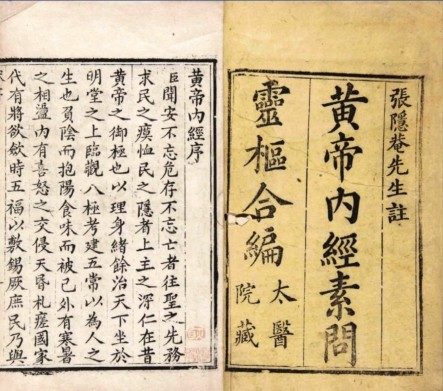 張隱菴先生註
黃帝內經素問
靈樞合編
太醫
院藏
黃帝內經序
臣聞安不忘危存不忘亡者往聖之先務
求民之瘼恤民之隱者上主之深仁在昔
黃帝之御極也以理身緒餘治天下坐於
明堂之上臨觀八極考建五常以為人之
生也負陰而抱陽食味而被色外有寒暑
之相盪內有喜怒之交侵夭昏札瘥國家
代有將欲斂時五福以敷錫厥庶民乃與